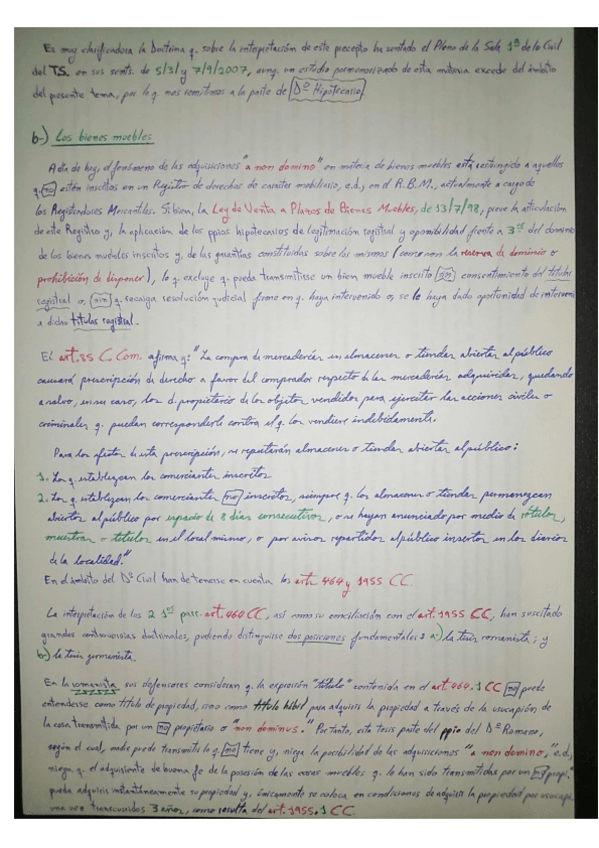 Es muy clarificadora la Doctrina q. sobre la interpretación de este precepto ha sentado el Pleno de la Sala 1ª de lo Civil
del TS. en sus sents. de 5/3/ y 7/9/2007, aunq. un estudio pormenorizado de esta materia excede del ámbito
del presente tema, por lo q. nos remitimos a la parte de Dº Hipotecario.
b-) Los bienes muebles
A día de hoy, el fenómeno de las adquisiciones "a non domino" en materia de bienes muebles está restringido a aquellos
q. no estén inscritos en un Registro de derechos de carácter mobiliario, e.d., en el R.B.M., actualmente a cargo de
los Registradores Mercantiles. Si bien, la Ley de Venta a Plazos de Bienes Muebles, de 13/7/98, prevé la articulación
de este Registro y, la aplicación de los ppios hipotecarios de legitimación registral y oponibilidad frente a 3º del dominio
de los bienes muebles inscritos y, de las garantías constituidas sobre los mismos (como son la reserva de dominio o
prohibición de disponer), lo q. excluye q. pueda transmitirse un bien mueble inscrito sin consentimiento del titular
registral o, sin q. recaiga resolución judicial firme en q. haya intervenido o, se le haya dado oportunidad de interveni
a dicho titular registral.
El art. 85 C. Com. afirma q: "La compra de mercaderías en almacenes o tiendas abiertas al público
causará prescripción de derecho a favor del comprador respecto de las mercaderías adquiridas, quedando
a salvo, en su caso, los d. propietario de los objetos vendidos para ejercitar las acciones civiles o
criminales q. puedan corresponderle contra el q. los vendiere indebidamente.
Para los efectos de esta prescripción, se reputarán almacenes o tiendas abiertas al público:
1. Los q. establezcan los comerciantes inscritos
2. Los q. establezcan los comerciantes no inscritos, siempre q. los almacenes o tiendas permanezcan
abiertos al público por espacio de 8 días consecutivos, o se hayan anunciado por medio de rótulos,
muestras o títulos en el local mismo, o por avisos repartidos al público o insertos en los diarios
de la localidad."
En el ámbito del Dº Civil han de tenerse en cuenta los arts. 464 y 1955 CC.
La interpretación de los 2 1os párr. art. 464 CC, así como su conciliación con el art. 1955 CC, han suscitado
grandes controversias doctrinales, pudiendo distinguirse dos posiciones fundamentales: a-) la tesis romanista; y
b-) la tesis germanista.
En la romanista sus defensores consideran q. la expresión "título" contenida en el art. 464.1 CC no puede
entenderse como título de propiedad, sino como título hábil para adquirir la propiedad a través de la usucapión de
la cosa transmitida por un no propietario o "non dominus." Por tanto, esta tesis parte del ppio del Dº Romano,
según el cual, nadie puede transmitir lo q. no tiene y, niega la posibilidad de las adquisiciones "a non domino," e.d.,
niega q. el adquirente de buena fe de la posesión de las cosas muebles q. le han sido transmitidas por un no propi.
pueda adquirir instantáneamente su propiedad y, únicamente se coloca en condiciones de adquirir la propiedad por usucapi.
una vez transcurridos 3 años, como resulta del art. 1955.1 CC.